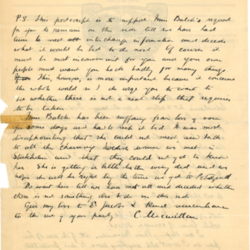 P.S. This postscript is to support Miss Balch's request
for you to remain in the            till we have had
time to meet all & interchange information and decide
what it would be best to do next. Of course it
must be sad                 for you and your own
people must want you back badly for many things
This, however, is more important because it concerns
the whole world so I do urge you to wait to
see whether there is not a next step that requires
to be taken.
Miss Balch has been suffering         from loss of voice
some days and had to rest in bed. It was most
disappointing that           could not meet           to
all the charming Swedish women we met in
Stockholm and that they could not get to know
her. She is getting a little better every day and we
hope she will be alright by the time we get to
Do wait here till we have met and decided whether
there is not something else to do in this
Give my love to Dr Jacobs &           remembrances
to the             of your party. C. Macmillan